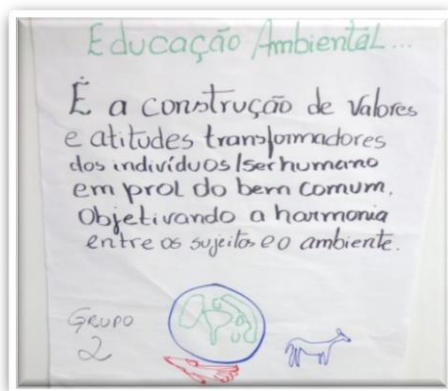 Educação Ambiental...
É a construção de valores
e atitudes transformadores
dos indivíduos/ser humano
em prol do bem comum.
Objetivando a harmonia
entre os sujeitos e o ambiente.
GRUPO
2